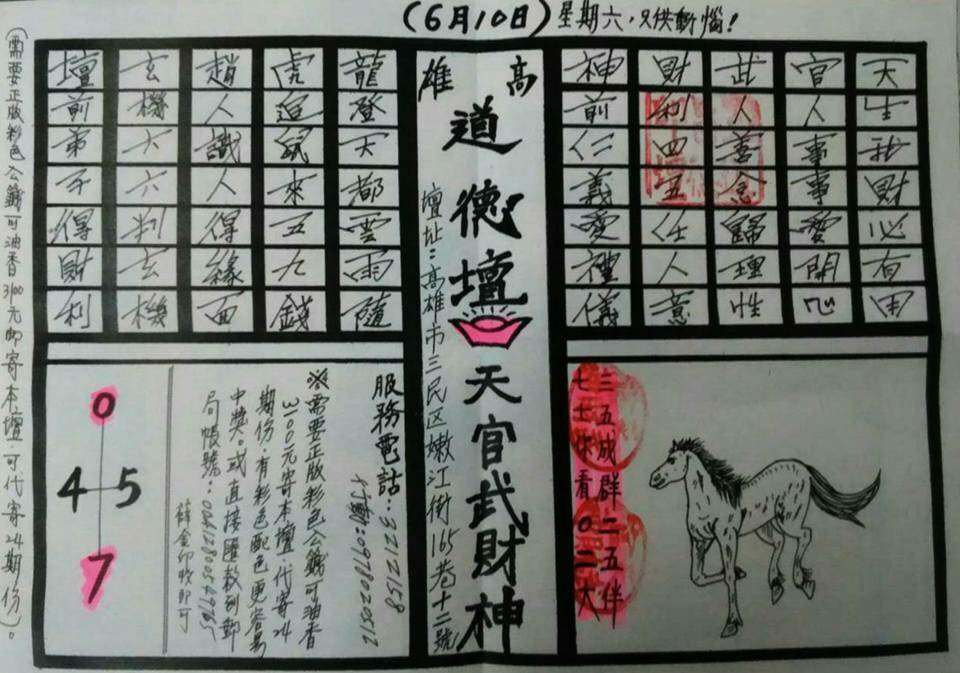 (6月10日)星期六,只供動惱!
天生我財必有用
官人事事愛開心
武人善念歸理性
財利四五任人意
神前仁義愛禮儀
三五成群二五伴
七七你看0二大
高雄
道德壇天官武財神
壇址:高雄市三民区嫩江街165巷十二號
龍登天都雲雨隨
虎追鼠來五九錢
趙人識人得緣面
玄機六六判玄機
壇前弟子得財利
服務電話:3212158
行動:0978020512
※需要正版彩色公籤可油香
3100元寄本壇·代寄24
期份·有彩色配色更容易
中獎。或直接匯款到郵
局帳號:
薛金印收即可
0
4 5
7
(需要正版彩色公籤可油香3100元即寄本壇·可代寄24期份)。